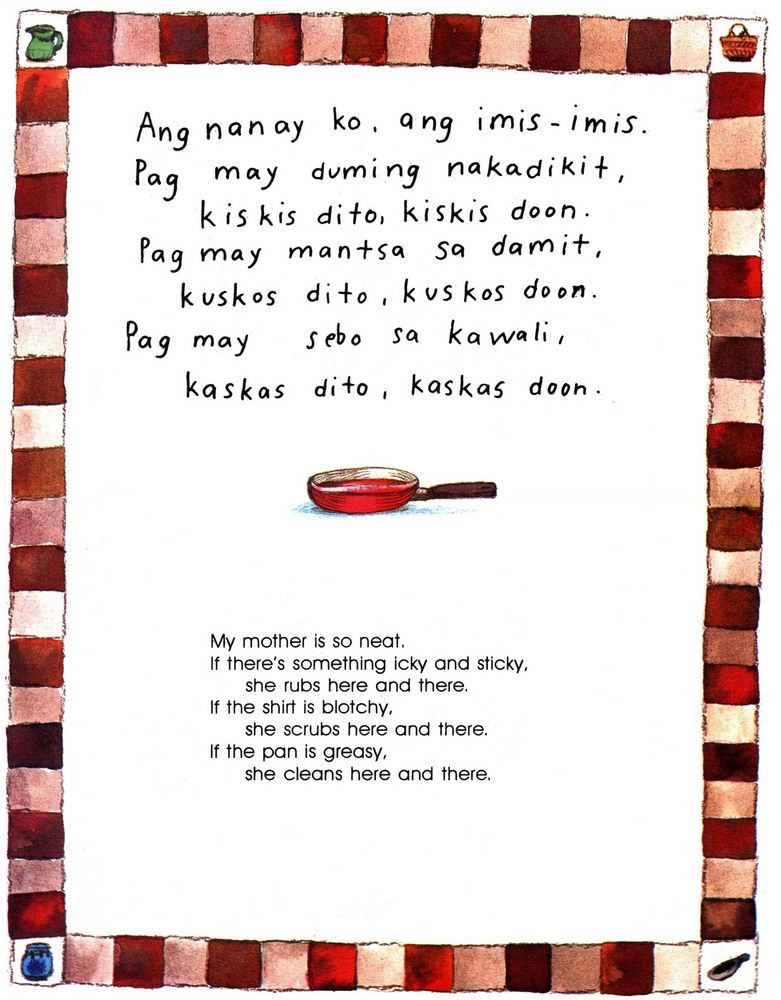 Ang nanay ko, ang imis-imis.
Pag may duming nakadikit,
kiskis dito, kiskis doon.
Pag may mantsa sa damit,
kuskos dito, kuskos doon.
Pag may sebo sa kawali,
kaskas dito, kaskas doon.
My mother is so neat.
If there's something icky and sticky,
she rubs here and there.
If the shirt is blotchy,
she scrubs here and there.
If the pan is greasy,
she cleans here and there.